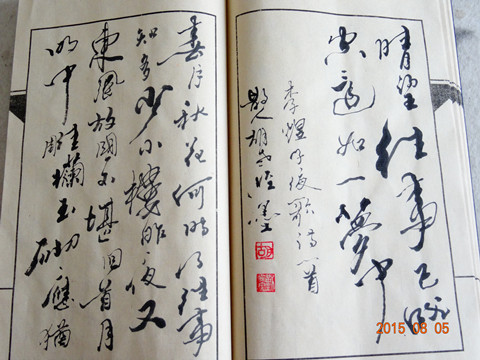 晴望往事已成
空還如一夢中
李煜子夜歌詩一首
春月秋花何時了往事
知多少小樓昨夜又
東風故國不堪回首月
明中雕欄玉砌應猶
2015 08 05